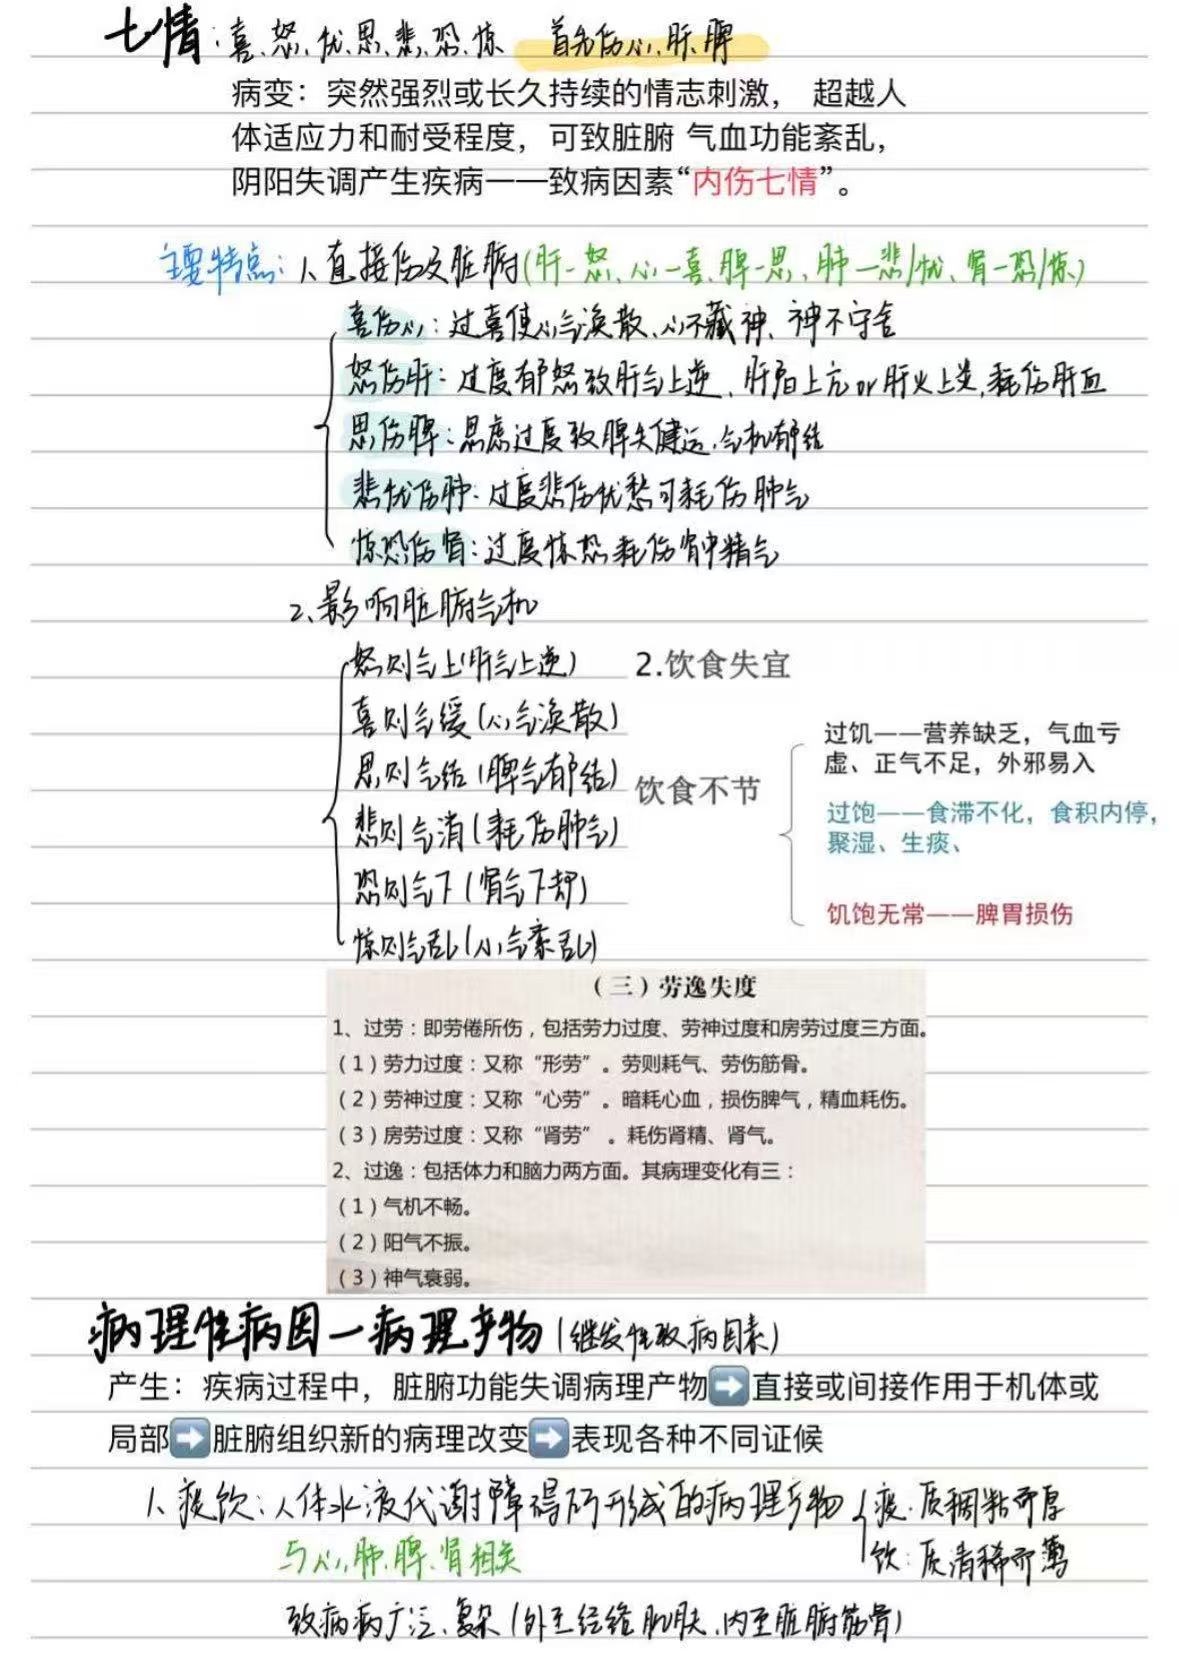 七情：喜、怒、忧、思、悲、恐、惊 首先伤心、肝、脾
病变：突然强烈或长久持续的情志刺激， 超越人
体适应力和耐受程度，可致脏腑 气血功能紊乱，
阴阳失调产生疾病——致病因素“内伤七情”。
主要特点：1、直接伤及脏腑(肝-怒、心-喜、脾-思、肺-悲/忧、肾-恐/惊)
喜伤心：过喜使心气涣散、心不藏神、神不守舍
怒伤肝：过度郁怒致肝气上逆、肝阳上亢or肝火上炎,耗伤肝血
思伤脾：思虑过度致脾失健运、气机郁结
悲忧伤肺：过度悲伤忧愁可耗伤肺气
惊恐伤肾：过度惊恐耗伤肾中精气
2、影响脏腑气机
怒则气上(肝气上逆)
喜则气缓(心气涣散)
思则气结(脾气郁结)
悲则气消(耗伤肺气)
恐则气下(肾气下却)
惊则气乱(心气紊乱)
2.饮食失宜
饮食不节
过饥——营养缺乏，气血亏
虚、正气不足，外邪易入
过饱——食滞不化，食积内停，
聚湿、生痰、
饥饱无常——脾胃损伤
（三）劳逸失度
1、过劳：即劳倦所伤，包括劳力过度、劳神过度和房劳过度三方面。
（1）劳力过度：又称“形劳”。劳则耗气、劳伤筋骨。
（2）劳神过度：又称“心劳”。暗耗心血，损伤脾气，精血耗伤。
（3）房劳过度：又称“肾劳” 。耗伤肾精、肾气。
2、过逸：包括体力和脑力两方面。其病理变化有三：
（1）气机不畅。
（2）阳气不振。
（3）神气衰弱。
病理性病因—病理产物(继发性致病因素)
产生：疾病过程中，脏腑功能失调病理产物➡️直接或间接作用于机体或
局部➡️脏腑组织新的病理改变➡️表现各种不同证候
1、痰饮：人体水液代谢障碍所形成的病理产物 痰：质稠粘而厚
饮：质清稀而薄
与心、肺、脾、肾相关
致病病广泛、复杂(外至经络肌肤、内至脏腑筋骨)